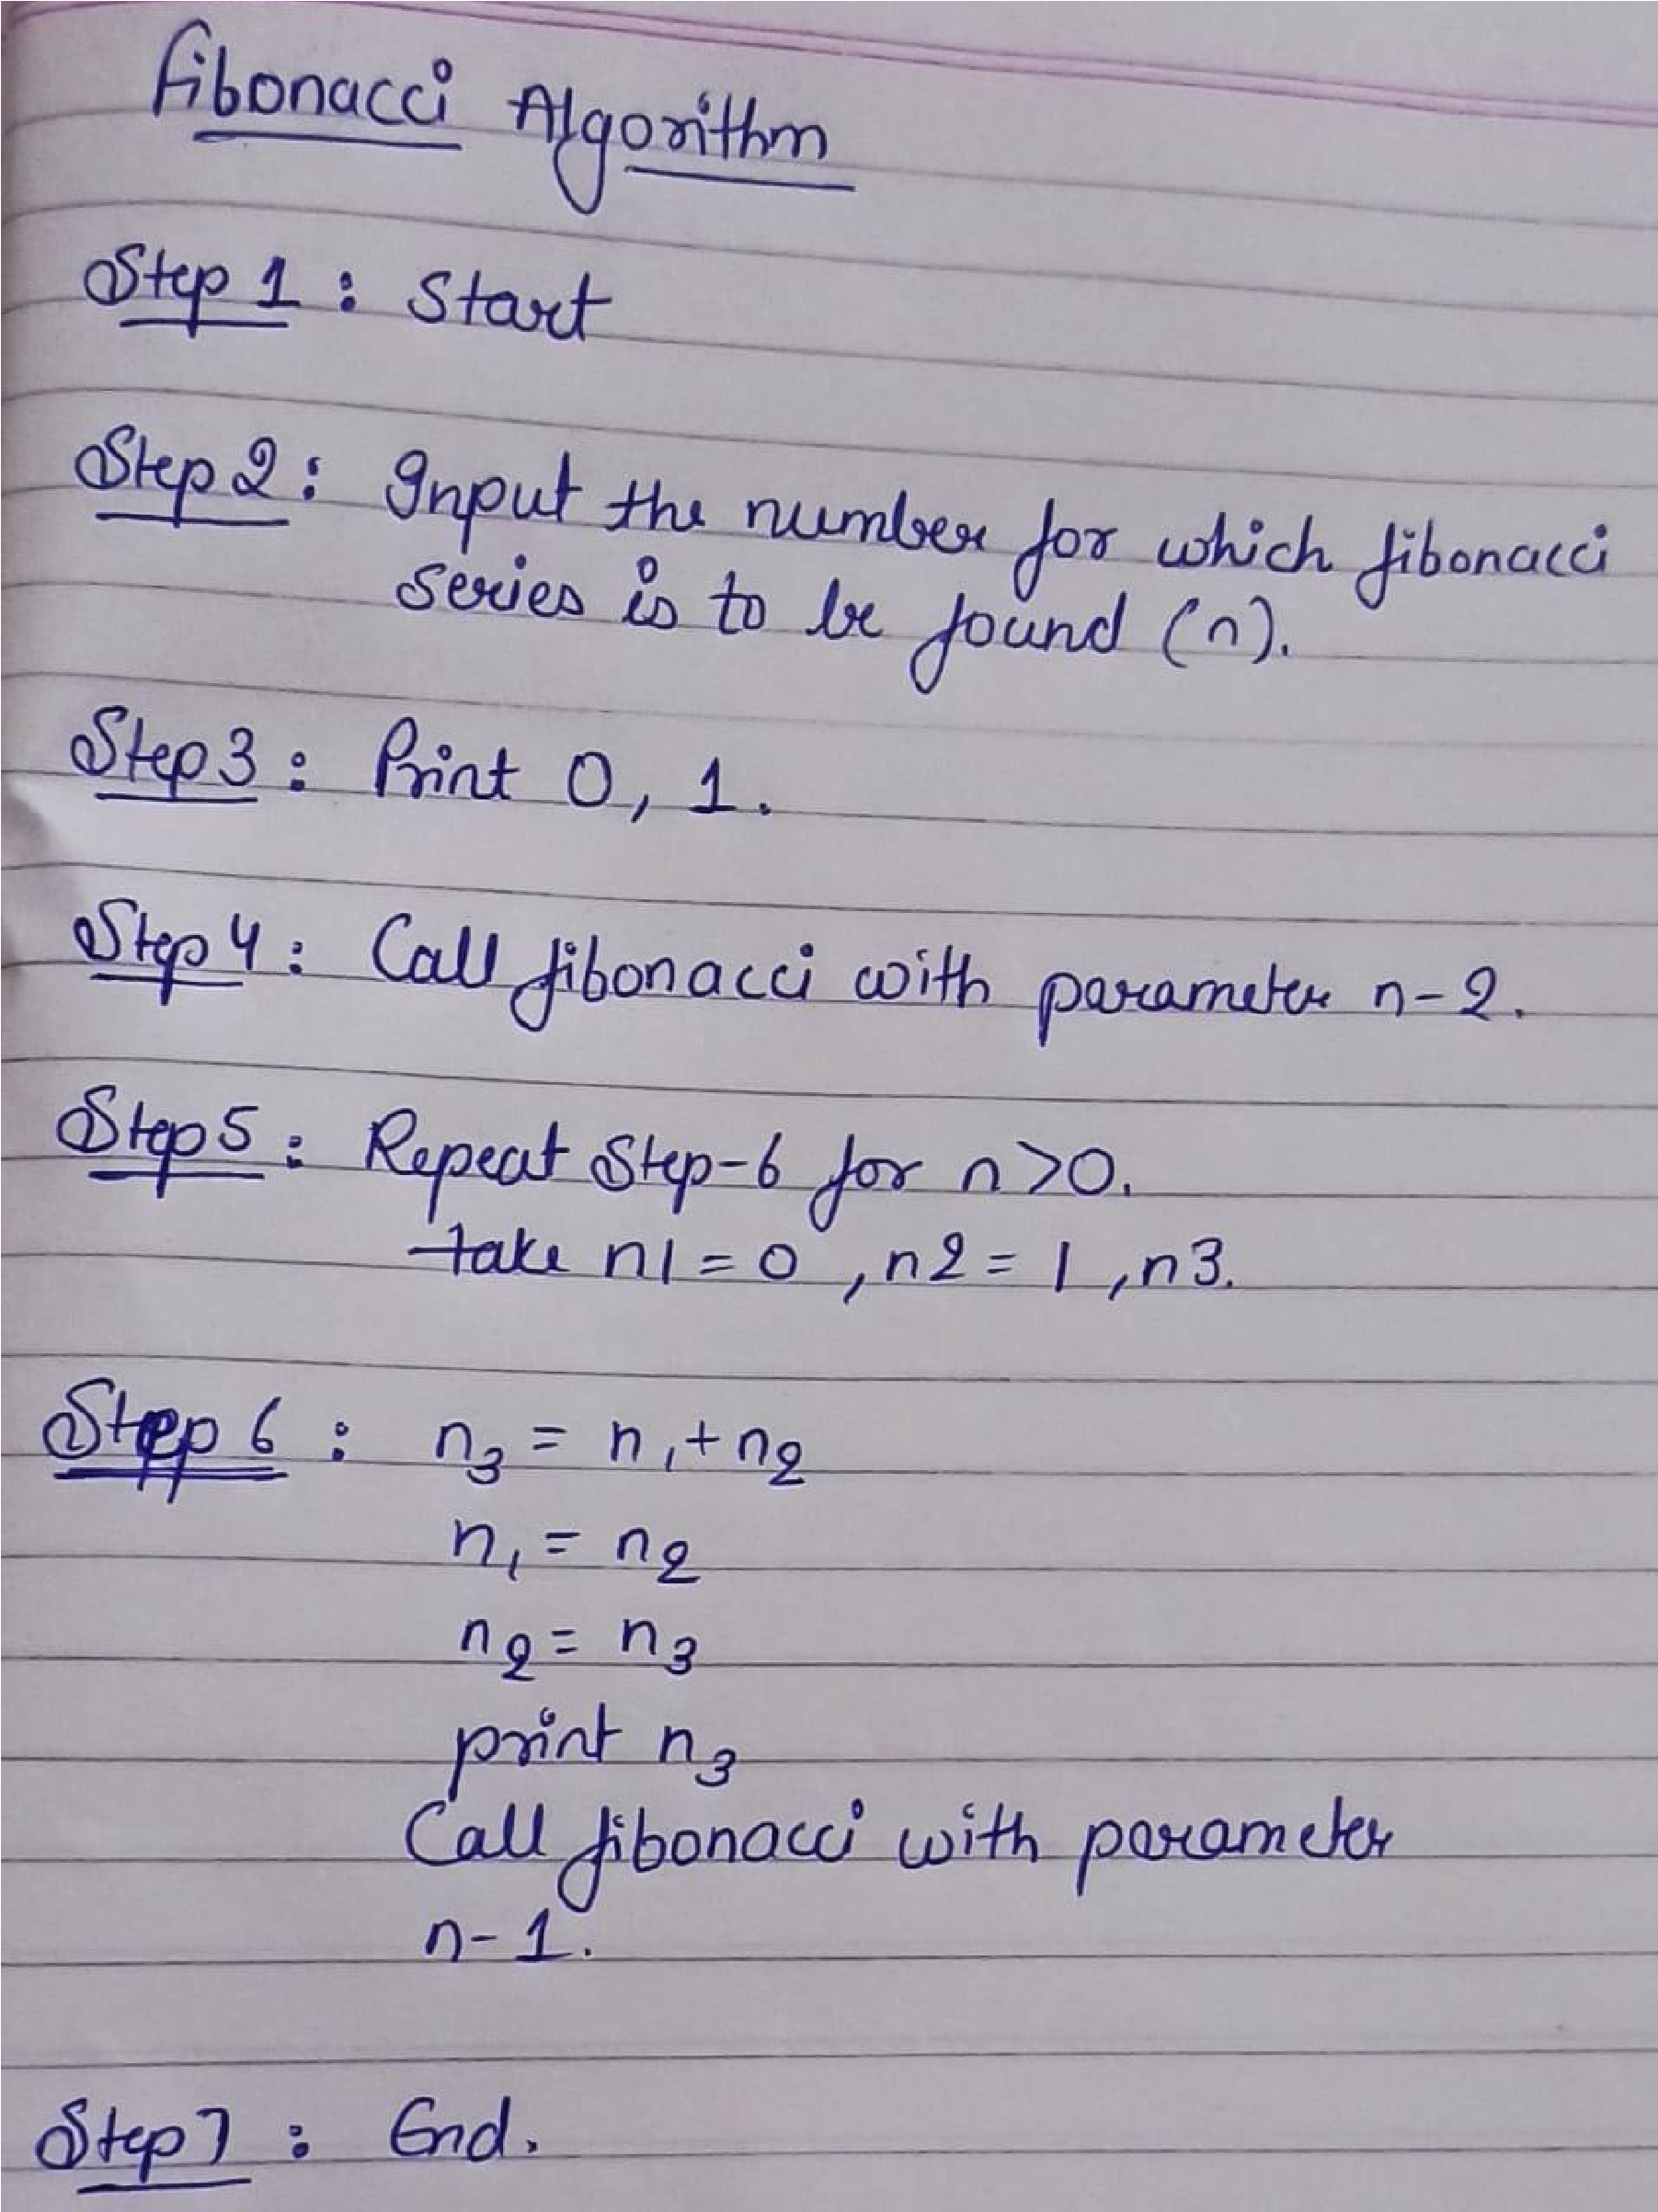 Fibonacci Algorithm
Step 1 : Start
Step 2 : Input the number for which fibonacci
series is to be found (n).
Step 3 : Print 0, 1.
Step 4 : Call fibonacci with parameter n-2.
Step 5 : Repeat Step-6 for n>0.
take n1=0, n2=1, n3.
Step 6 : n₃ = n₁+n₂
n₁ = n₂
n₂ = n₃
print n₃
Call fibonacci with parameter
n-1.
Step 7 : End.